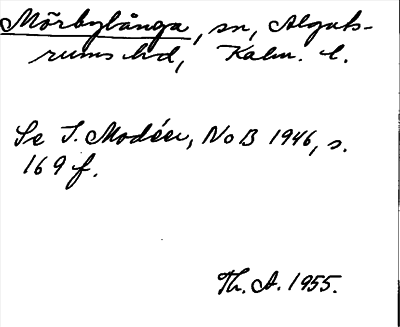 Mörbylånga, sn, Alguts-
rums hd, Kalm. l.
Se I. Modéer, NoB 1946, s.
169 f.
Th. A. 1955.